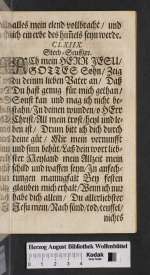 alles mein elend vollbracht / und
ich ein erbe des himels seyn werde.
CLXIIX.
Sterb-Seufftzer.
Ach mein HERR JESU /
GOTTES Sohn / Zeug
du deinem lieben Vater an / Daß
Du hast genug für mich gethan /
Sonst kan und mag ich nicht be-
stahn / In deinen wunden o Herr
Christ / All mein trost / heyl und le-
ben ist / Drum bitt ich dich durch
deine Mir mein vernunfft
und sinn behüt / Laß dein wort lieb-
ster Heyland mein Allzeit mein
schild und waffen seyn / In anfech-
tungen mannigfalt Bey festen
glauben mich erhalt / Wenn ich nur
habe dich allein / Du allerliebster
Jesu mein / Nach sünd / tod / teuffel /
nichts
Herzog August Bibliothek Wolfenbüttel
Kodak
Color